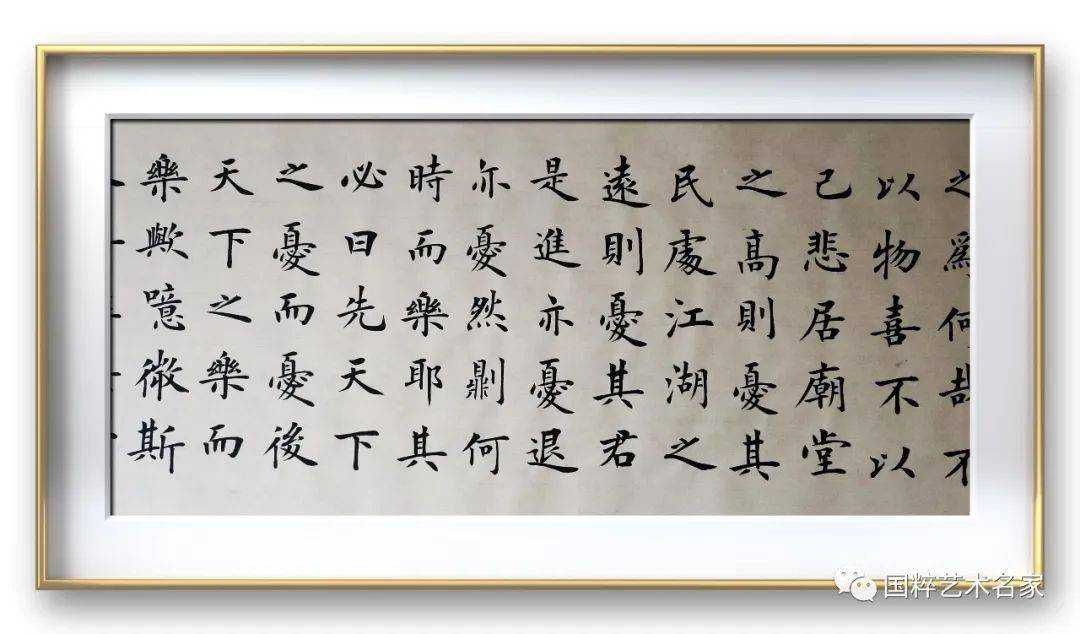 之爲何哉不
以物喜不以
己悲居廟堂
之高則憂其
民處江湖之
遠則憂其君
是進亦憂退
亦憂然則何
時而樂耶其
必曰先天下
之憂而憂後
天下之樂而
樂歟噫微斯
国粹艺术名家